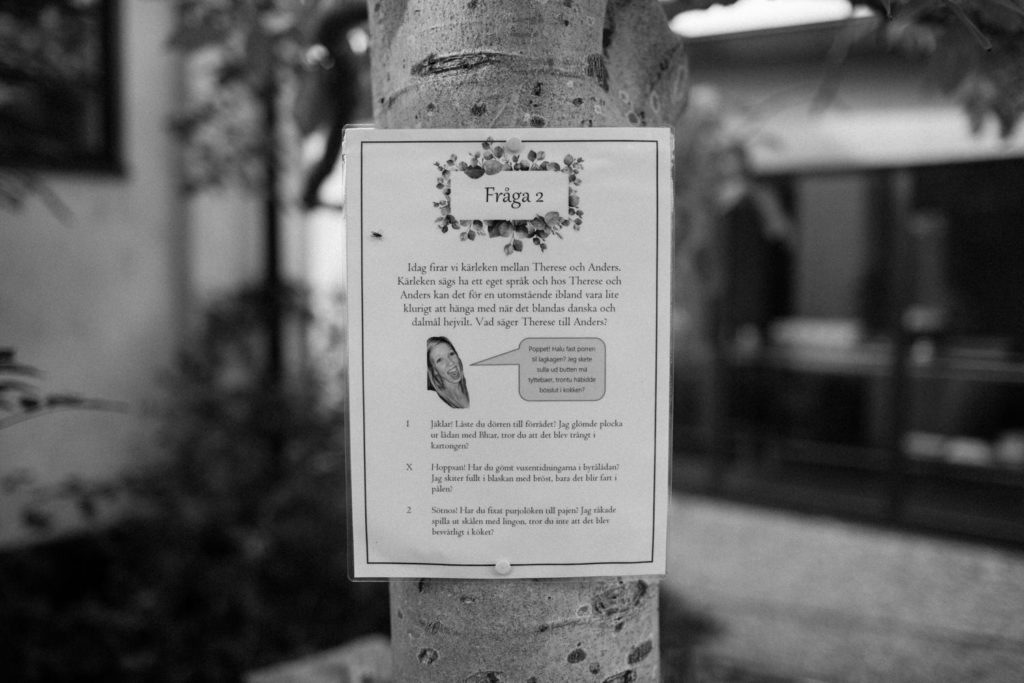 Fråga 2
Idag firar vi kärleken mellan Therese och Anders.
Kärleken sägs ha ett eget språk och hos Therese och
Anders kan det för en utomstående ibland vara lite
klurigt att hänga med när det blandas danska och
dalmål hejvilt. Vad säger Therese till Anders?
Poppet! Halu fast porren
til lagkagen? Jeg skete
sulla ud butten má
tyttebaer, trontu häbidde
bösslut i kokken?
1 Jäklar! Låste du dörren till förrådet? Jag glömde plocka
ur lådan med tror du att det blev trångt i
kartongen?
X Hoppsan! Har du gömt vuxentidningarna i byrålådan?
Jag skiter fullt i blaskan med bröst, bara det blir fart i
pålen?
2 Sötnos! Har du fixat purjolöken till pajen? Jag råkade
spilla ut skålen med lingon, tror du inte att det blev
besvärligt i köket?